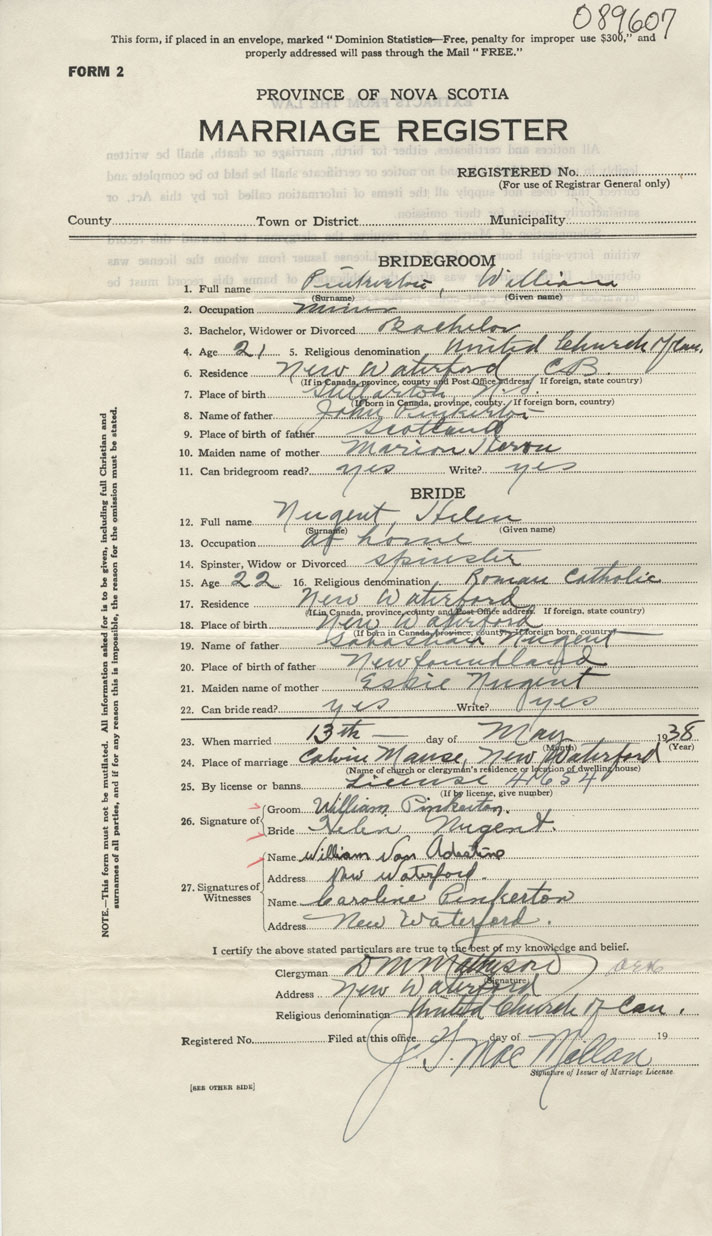 089607
This form, if placed in an envelope, marked "Dominion Statistics—Free, penalty for improper use $300," and
properly addressed will pass through the Mail "FREE."
FORM 2
PROVINCE OF NOVA SCOTIA
MARRIAGE REGISTER
REGISTERED No.
(For use of Registrar General only)
County Town or District Municipality
BRIDEGROOM
1. Full name Pinkerton, William
(Surname) (Given name)
2. Occupation miner
3. Bachelor, Widower or Divorced Bachelor
4. Age 21 5. Religious denomination United Church of Can.
6. Residence New Waterford C.B.
(If in Canada, province, county and Post Office address. If foreign, state country)
7. Place of birth Stellarton N.S.
(If born in Canada, province, county. If foreign born, country)
8. Name of father John Pinkerton
9. Place of birth of father Scotland
10. Maiden name of mother Marion Heron
11. Can bridegroom read? yes Write? yes
BRIDE
12. Full name Nugent Helen
(Surname) (Given name)
13. Occupation at home
14. Spinster, Widow or Divorced spinster
15. Age 22 16. Religious denomination Roman Catholic
17. Residence New Waterford
(If in Canada, province, county and Post Office address. If foreign, state country)
18. Place of birth New Waterford
(If born in Canada, province, county. If foreign born, country)
19. Name of father Nugent
20. Place of birth of father Newfoundland
21. Maiden name of mother Essie Nugent
22. Can bride read? yes Write? yes
23. When married 13th day of May 1938
(Month) (Year)
24. Place of marriage Calvin Manse, New Waterford
(Name of church or clergyman's residence or location of dwelling house)
25. By license or banns License 4637
(If by license, give number)
26. Signature of Groom William Pinkerton.
Bride Helen Nugent.
27. Signatures of Witnesses
Name William Van
Address New Waterford.
Name Caroline Pinkerton
Address New Waterford.
I certify the above stated particulars are true to the best of my knowledge and belief.
Clergyman D M Mathyson
(Signature)
Address New Waterford
Religious denomination United Church of Can.
Registered No. Filed at this office day of 19
J. G. MacMillan
Signature of Issuer of Marriage License.
[SEE OTHER SIDE]
NOTE.—This form must not be mutilated. All information asked for is to be given, including full Christian and
surnames of all parties, and if for any reason this is impossible, the reason for the omission must be stated.